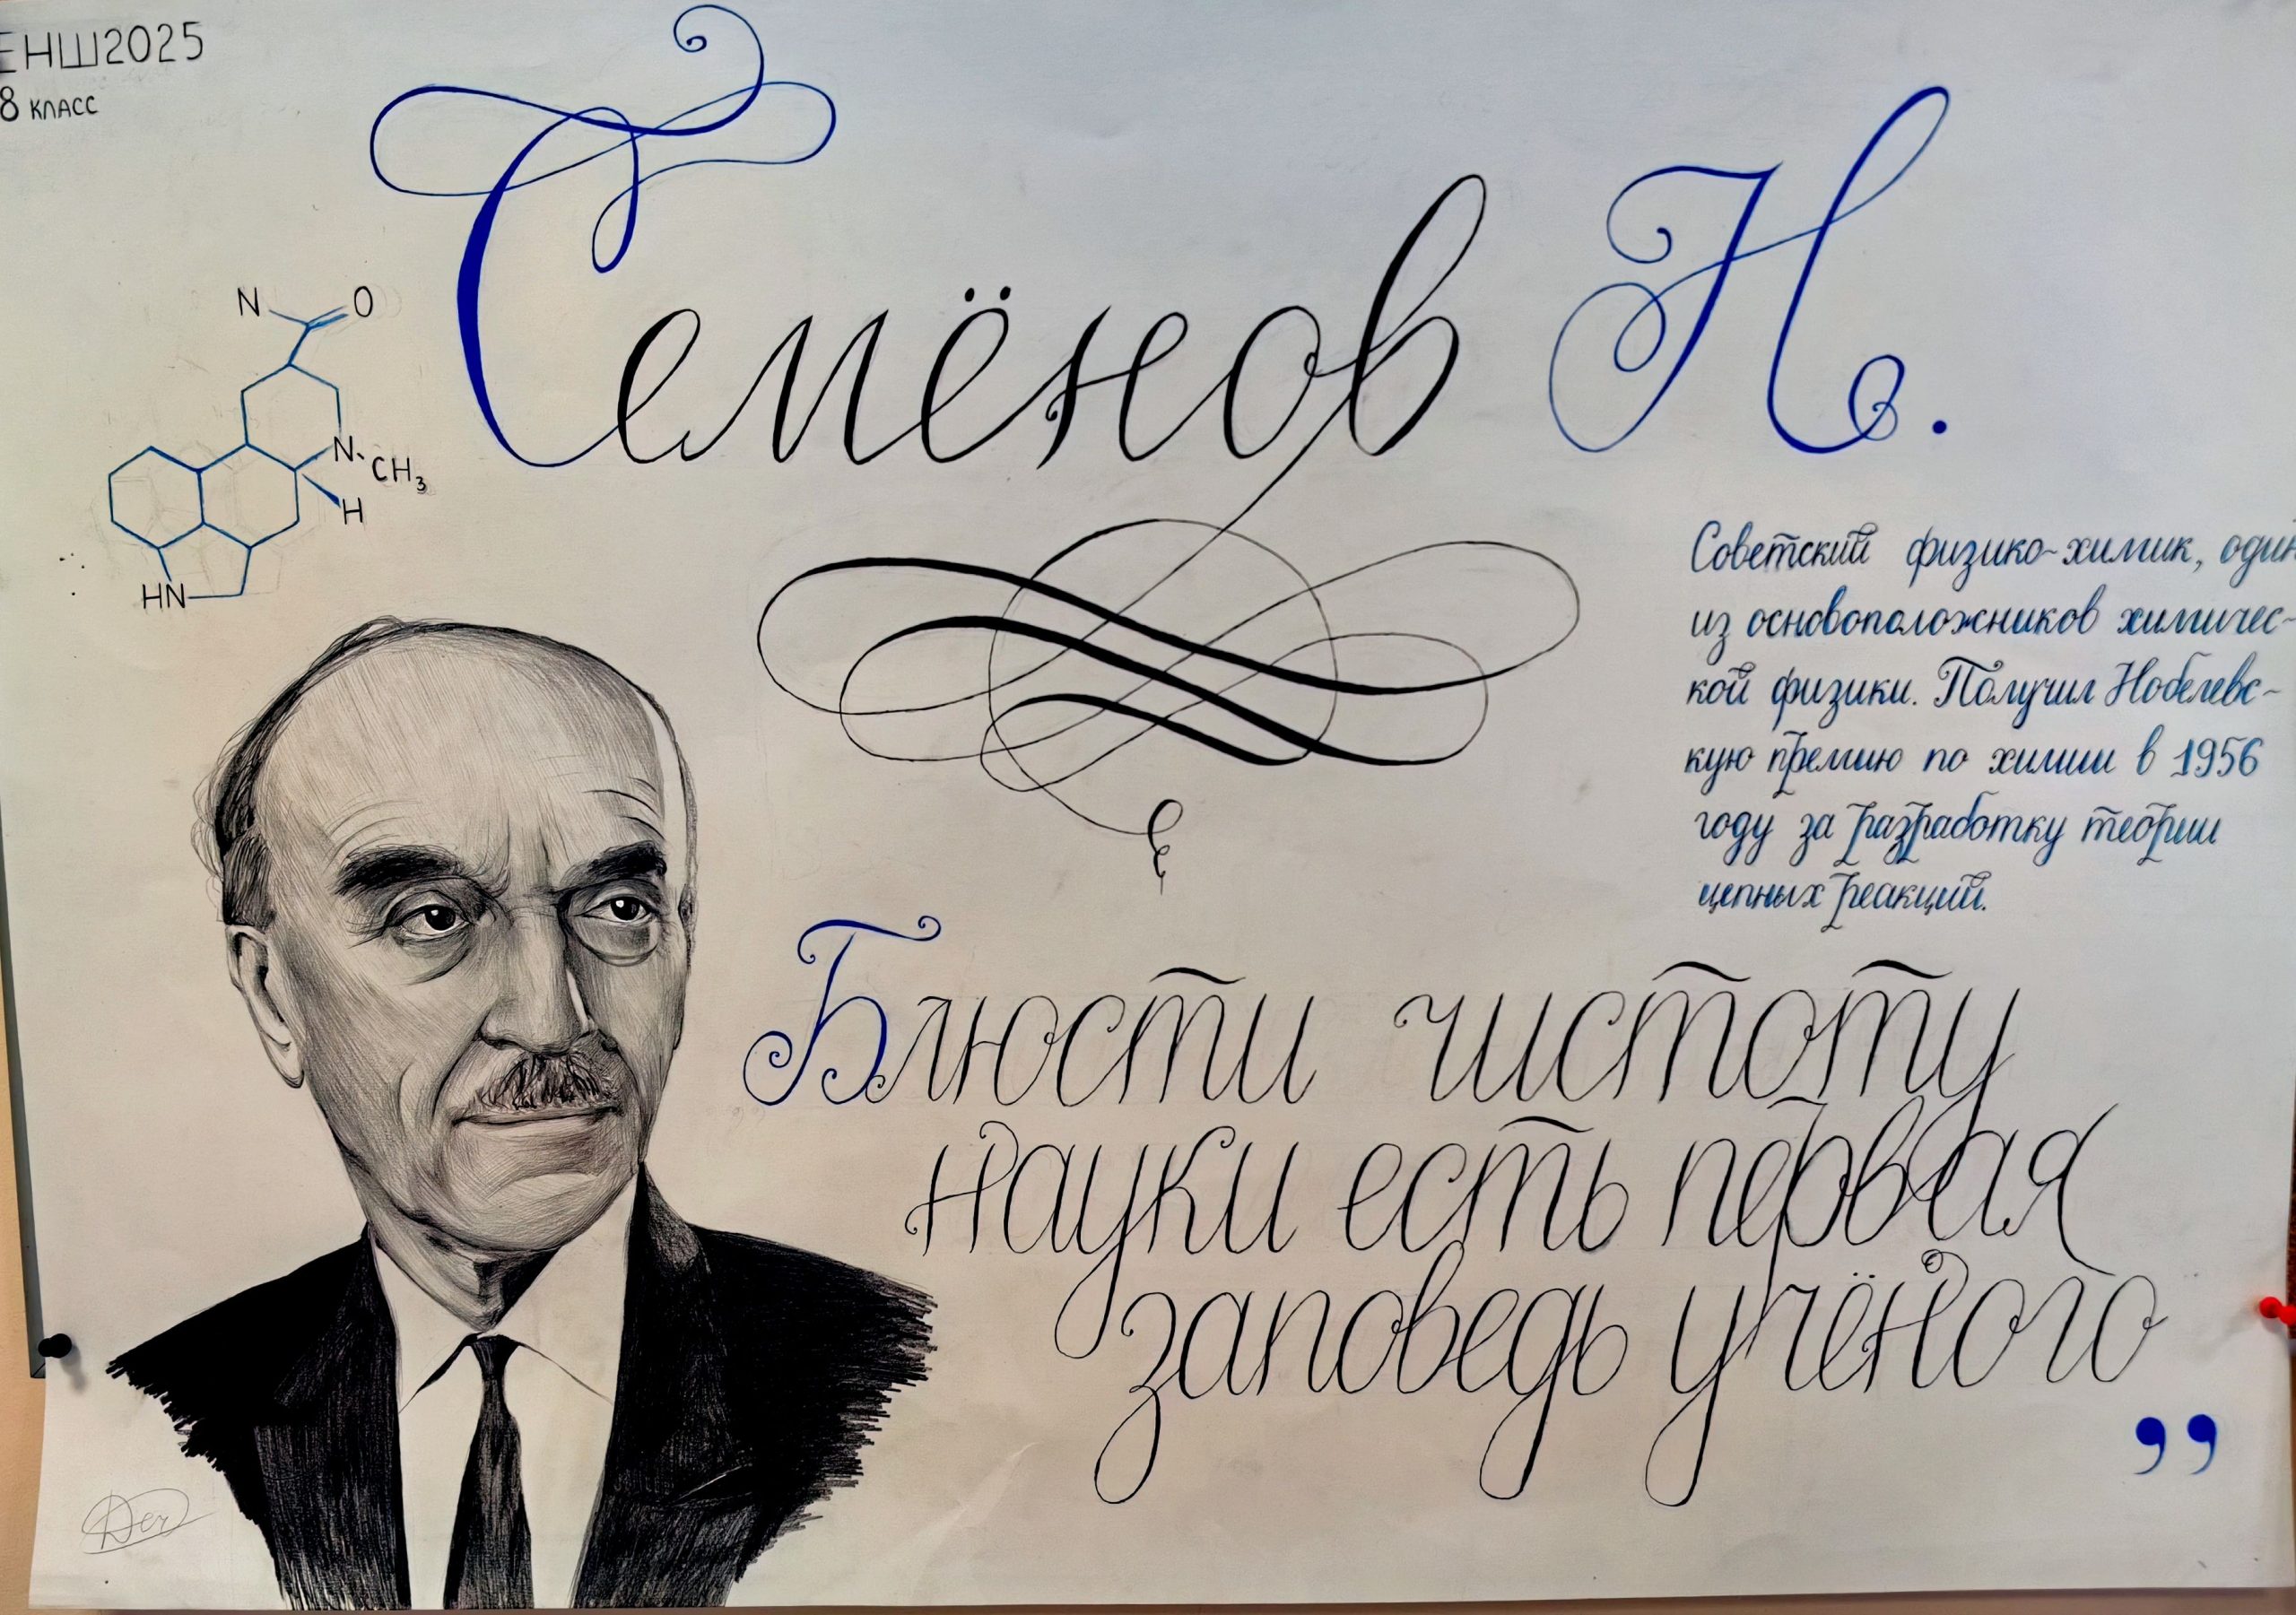 ЕНШ2025
8 класс
Семёнов Н.
N
O
N
CH3
H
HN
Советский физико-химик, один
из основоположников химичес-
кой физики. Получил Нобелевс-
кую премию по химии в 1956
году за разработку теории
цепных реакций.
Блюсти чистоту
науки есть первая
заповедь учёного
”